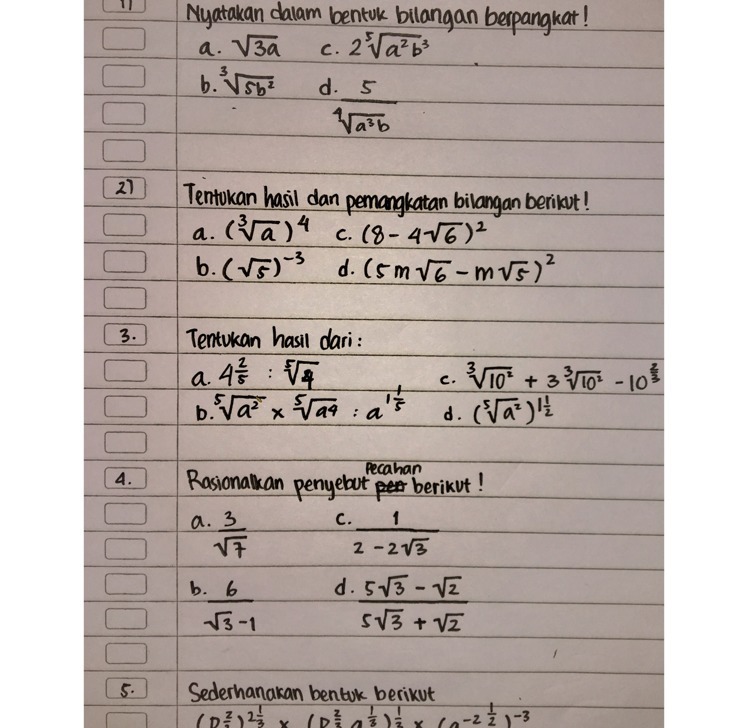 1)
Nyatakan dalam bentuk bilangan berpangkat!
a. √3a c. 2⁵√a²b³
b. ³√5b² d. 5/⁴√a³b
2) Tentukan hasil dan pemangkatan bilangan berikut!
a. (³√a)⁴ c. (8 - 4√6)²
b. (√5)⁻³ d. (5m√6 - m√5)²
3. Tentukan hasil dari:
a. 4^(2/5) : ⁵√4 c. ³√10² + 3 ³√10² - 10^(2/3)
b. ⁵√a² × ⁵√a4 : a^(1 1/5) d. (⁵√a²)^(1 1/2)
4. Rasionalkan penyebut Pecahan berikut!
a. 3/√7 c. 1/(2 - 2√3)
b. 6/(√3 - 1) d. (5√3 - √2)/(5√3 + √2)
5. Sederhanakan bentuk berikut